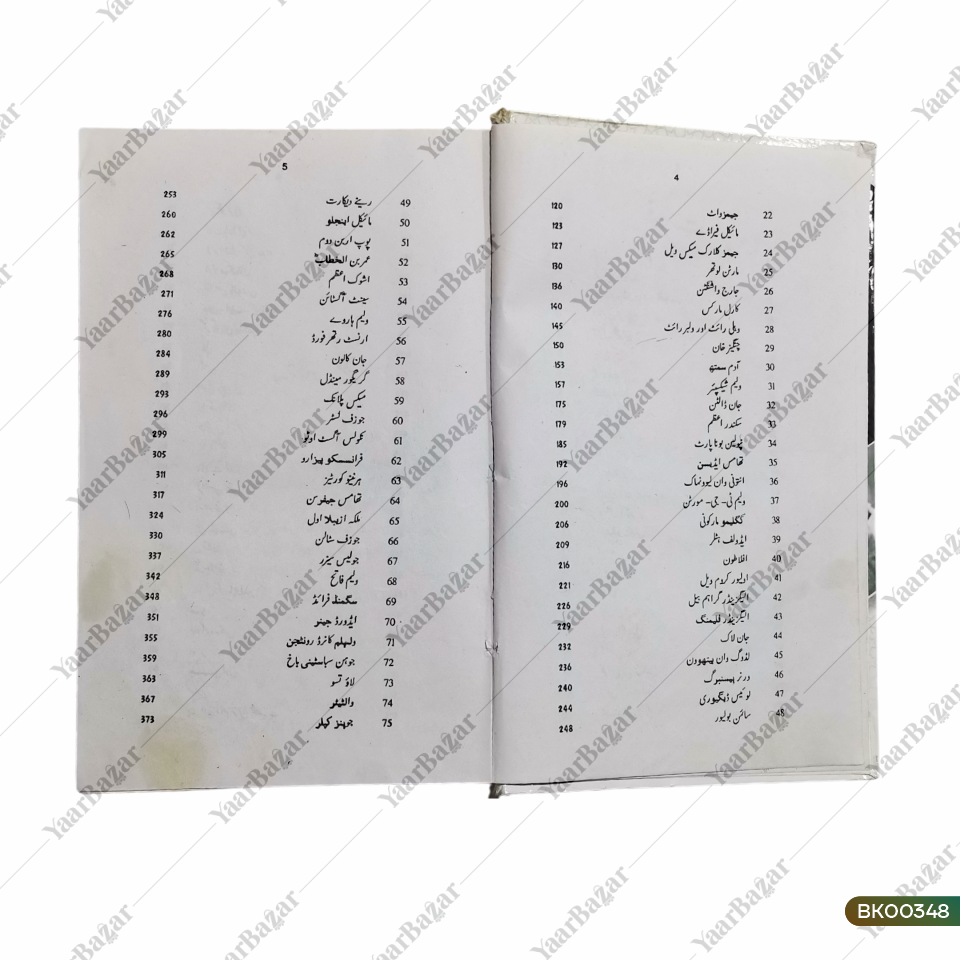 4
22 جیمز واٹ 120
23 مائیکل فیراڈے 123
24 جیمز کلارک میکس ویل 127
25 مارٹن لوتھر 130
26 جارج واشنگٹن 136
27 کارل مارکس 140
28 ویلی رائٹ اور ولبر رائٹ 145
29 چنگیز خان 150
30 آدم سمتھ 153
31 ولیم شیکسپئر 157
32 جان ڈالٹن 175
33 سکندر اعظم 179
34 نپولین بونا پارٹ 185
35 تھامس ایڈیسن 192
36 انتونی وان لیوونہاک 196
37 ولیم ٹی- جی- مورٹن 200
38 گگلیمو مارکونی 206
39 ایڈولف ہٹلر 209
40 افلاطون 216
41 اولیور کروم ویل 221
42 الیگزینڈر گراہم بیل 226
43 الیگزینڈر فلیمنگ 229
44 جان لاک 232
45 لڈوگ وان بیتھوون 236
46 ورنر ہیسنبرگ 240
47 لوئیس ڈیگیوری 244
48 سائن بولیور 248
5
49 رینے ڈیکارٹ 253
50 مائیکل اینجلو 260
51 پوپ اربن دوم 262
52 عمر بن الخطابؓ 265
53 اشوک اعظم 268
54 سینٹ آگسٹائن 271
55 ولیم ہاروے 276
56 ارنسٹ رتھر فورڈ 280
57 جان کالون 284
58 گریگور مینڈل 289
59 میکس پلانک 293
60 جوزف لسٹر 296
61 نکولس آگسٹ اوٹو 299
62 فرانسسکو پیزارو 305
63 ہرنینڈو کورٹیز 311
64 تھامس جیفرسن 317
65 ملکہ ازبیلا اول 324
66 جوزف سٹالن 330
67 جولیس سیزر 337
68 ولیم فاتح 342
69 سگمنڈ فرائڈ 348
70 ایڈورڈ جینر 351
71 ولہیلم کانرڈ رونٹجن 355
72 جوہن سباسٹینی باخ 359
73 لاؤ تسو 363
74 والٹیئر 367
75 جوہنز کیپلر 373
YaarBazar
BK00348